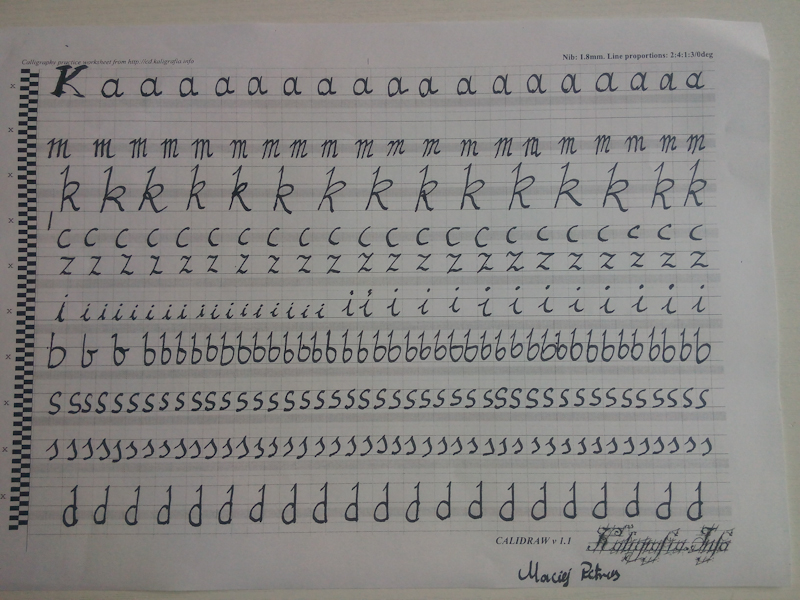 Calligraphy practice worksheet from http://cd.kaligrafia.info
Nib: 1.8mm. Line proportions: 2:4:1:3/0deg
K a a a a a a a a a a a a a a a a a
m m m m m m m m m m m m m m m m m m m m
k k k k k k k k k k k k k k
c c c c c c c c c c c c c c c c c c c c c
z z z z z z z z z z z z z z z z z z z z z
i i i i i i i i i i i i i i i i i i i i i i i i i i i i i
b b b b b b b b b b b b b b b b b b b b b b b b b b b b b b b b b b b b b b b
s s s s s s s s s s s s s s s s s s s s s s s s s s s s s s s s s s s s s s s s s
s s s s s s s s s s s s s s s s s s s s s s s s s s s s s s s s s s s s s s s
d d d d d d d d d d d d d d d d d d d d d
CALIDRAW v 1.1
Kaligrafia.Info
Maciej